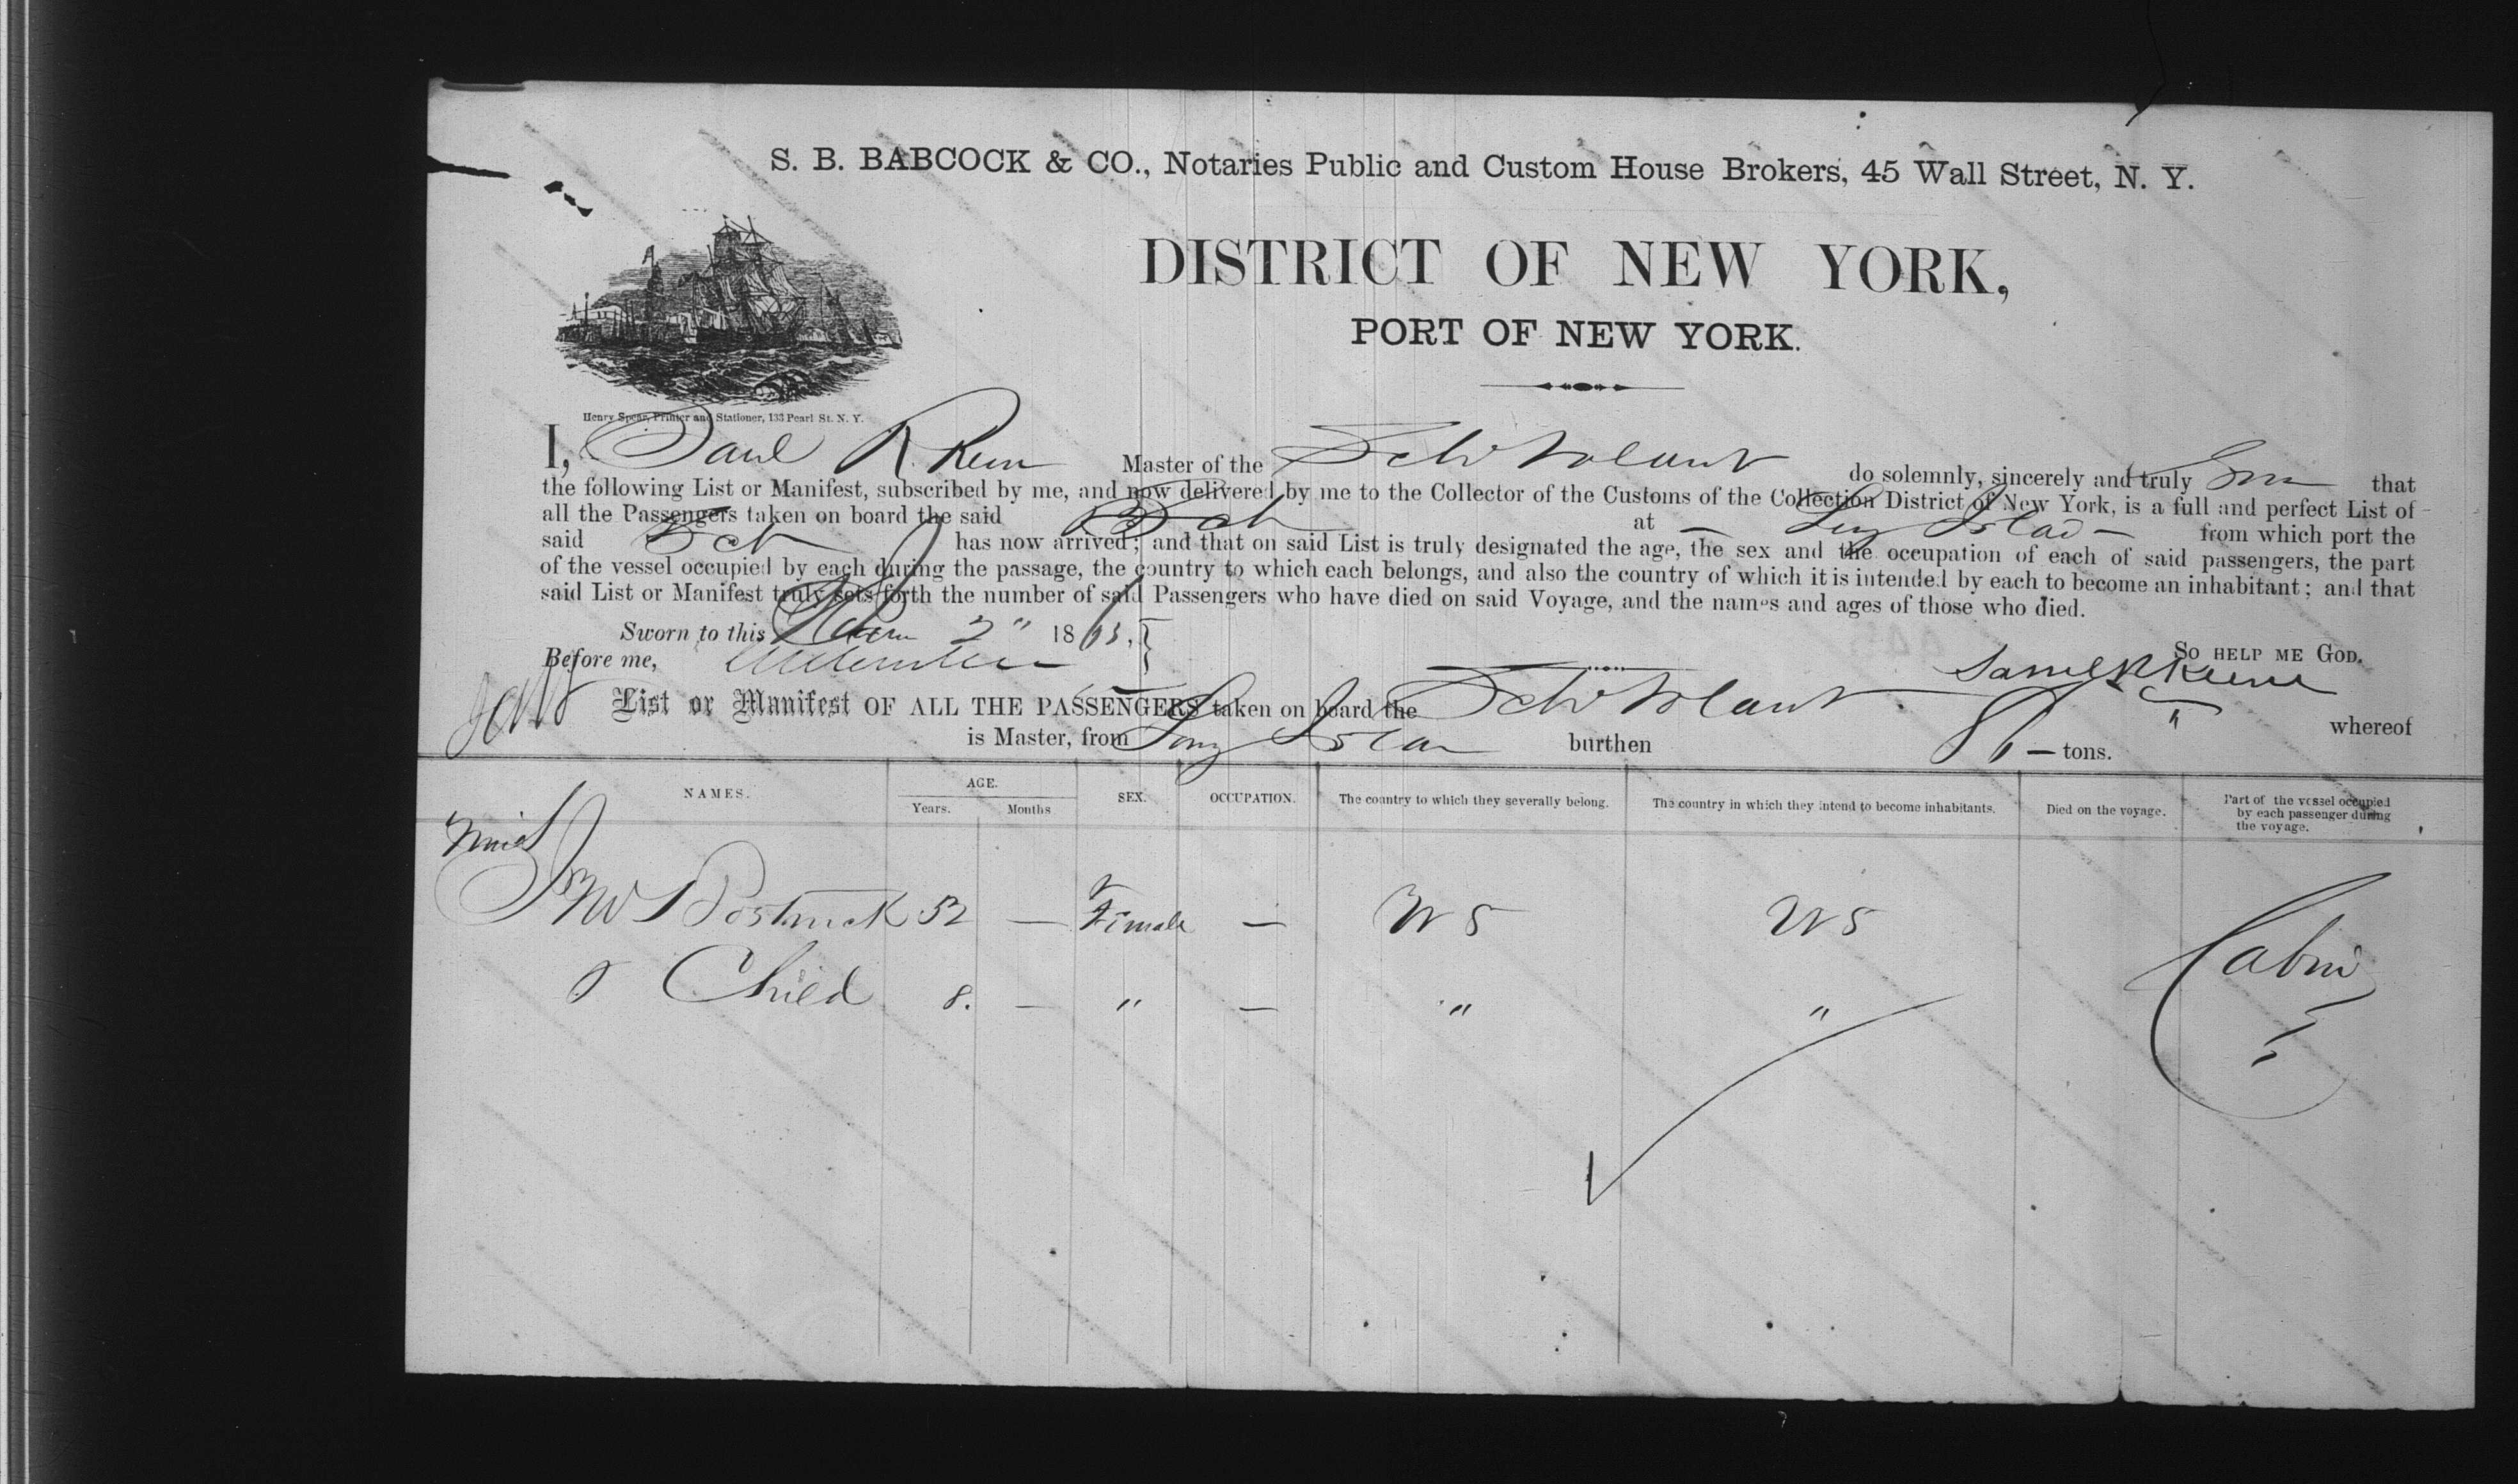 S. B. BABCOCK & CO., Notaries Public and Custom House Brokers, 45 Wall Street, N. Y.
DISTRICT OF NEW YORK,
PORT OF NEW YORK.
Henry Spear, Printer and Stationer, 133 Pearl St. N. Y.
I, Saml R. Master of the Schr Volant do solemnly, sincerely and truly that
the following List or Manifest, subscribed by me, and now delivered by me to the Collector of the Customs of the Collection District of New York, is a full and perfect List of
all the Passengers taken on board the said Sch at from which port the
said Sch has now arrived; and that on said List is truly designated the age, the sex and the occupation of each of said passengers, the part
of the vessel occupied by each during the passage, the country to which each belongs, and also the country of which it is intended by each to become an inhabitant; and that
said List or Manifest truly sets forth the number of said Passengers who have died on said Voyage, and the names and ages of those who died.
Sworn to this 2" 1863,
SO HELP ME GOD.
Before me,
List or Manifest OF ALL THE PASSENGERS taken on board the Schr Volant whereof
is Master, from burthen tons.
NAMES. AGE. Years. Months SEX. OCCUPATION. The country to which they severally belong. The country in which they intend to become inhabitants. Died on the voyage. Part of the vessel occupied by each passenger during the voyage.
Bostwick 52 — Female — US US Cabin
& Child 8. — " — " "